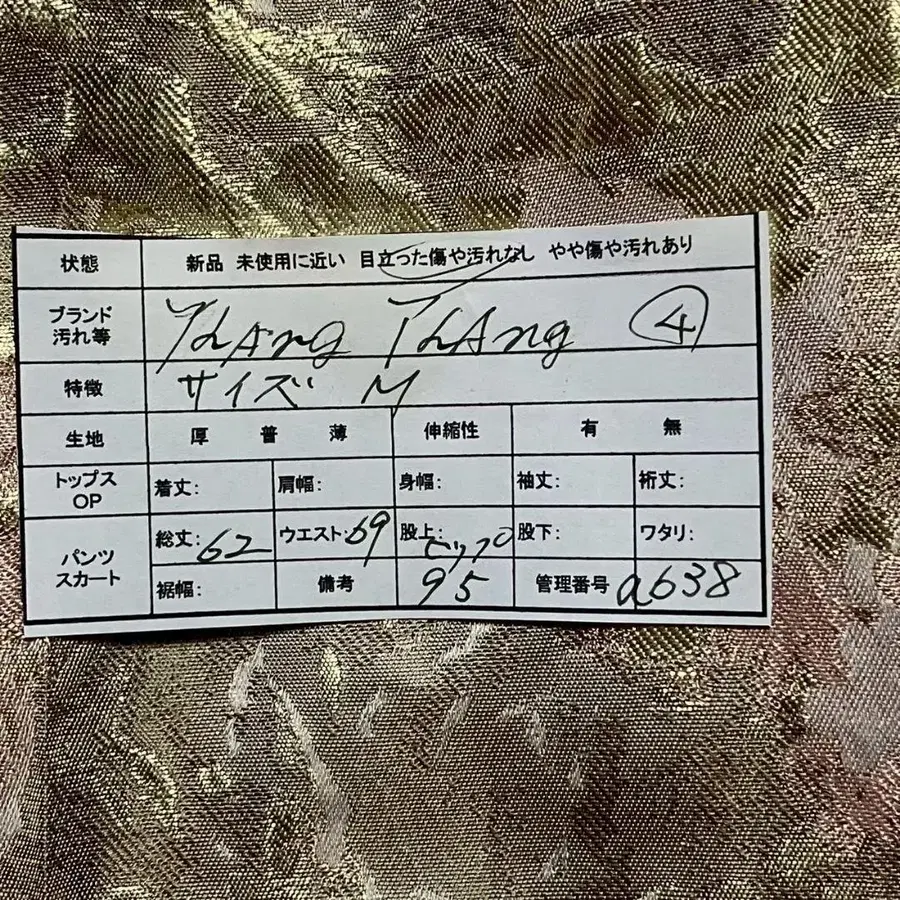 状態 新品 未使用に近い 目立った傷や汚れなし やや傷や汚れあり
ブランド
汚れ等 YhAng ThAng ④
特徴 サイズ M
生地 厚 普 薄 伸縮性 有 無
トップス
OP 着丈: 肩幅: 身幅: 袖丈: 裄丈:
パンツ
スカート 総丈: 62 ウエスト: 69 股上: ヒップ 股下: ワタリ:
裾幅: 備考 95 管理番号 a638